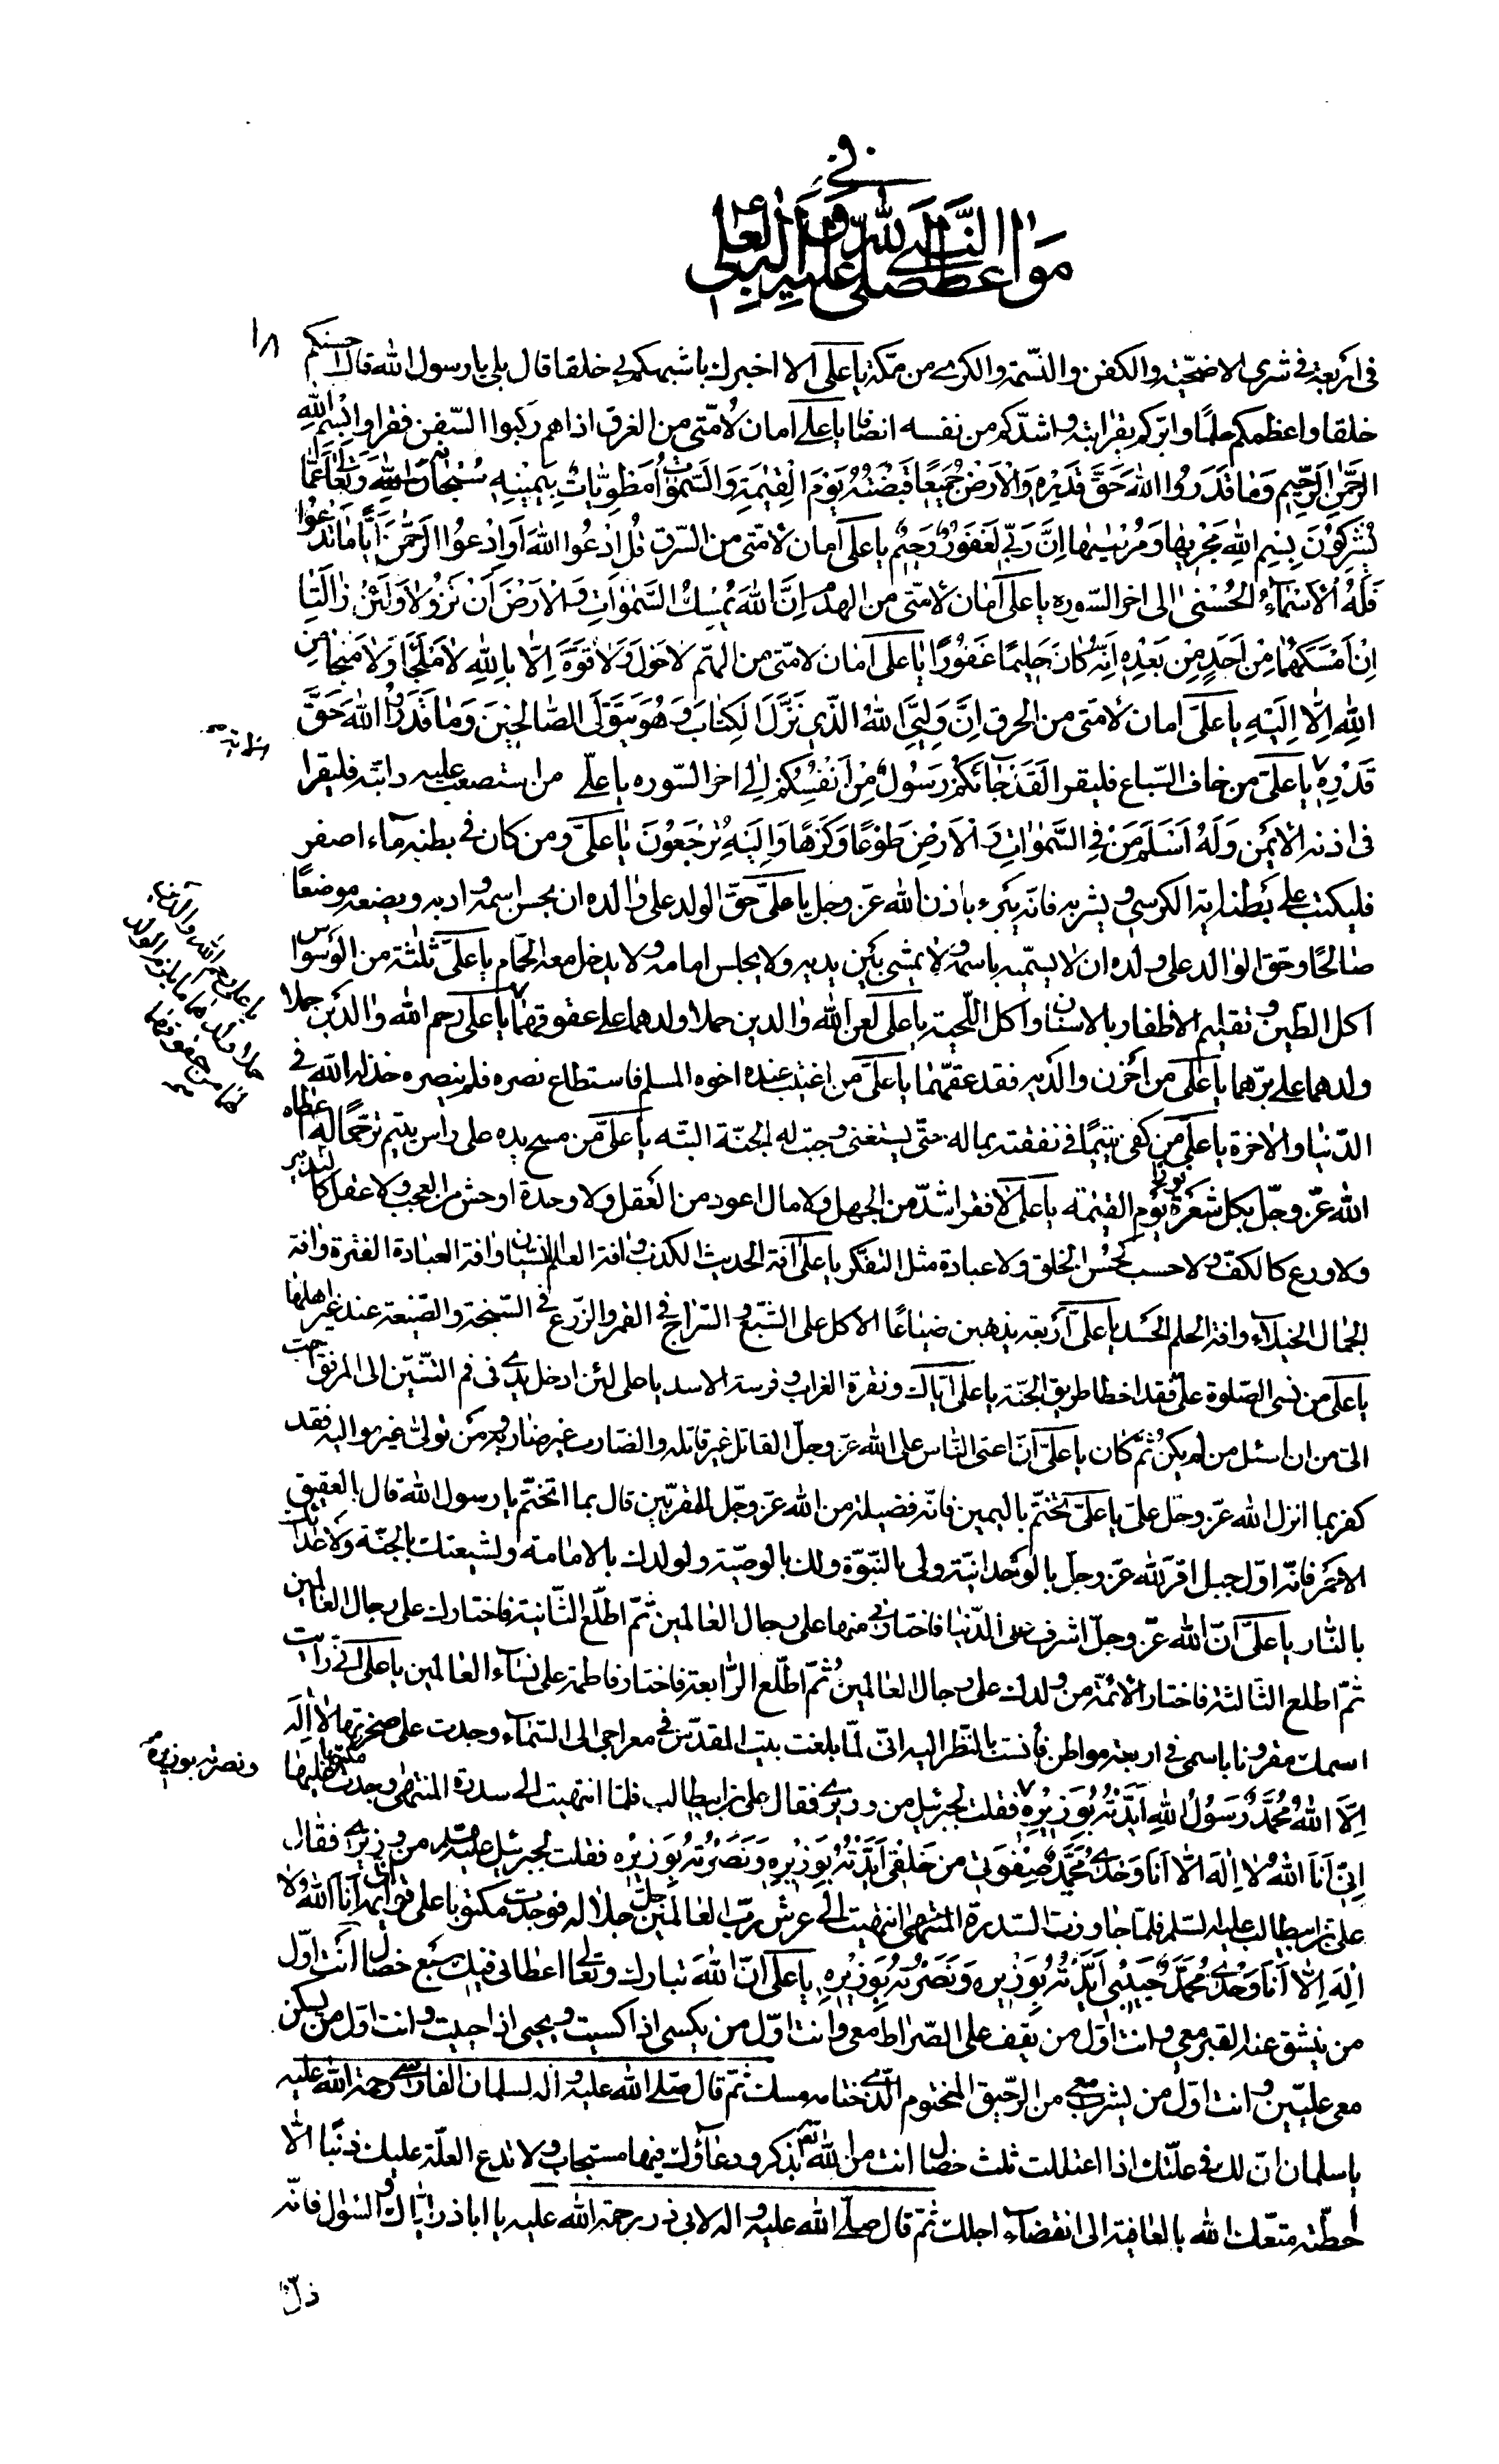 في
مواعظ النبي صلى الله عليه و آله البعلي
١٨
في اربعة في شرى الاضحّية والكفن والنّسمة والكرى من مكّة يا علىّ الا اخبرك باشبهكم بى خلقا قال بلى يا رسول الله قال احسنكم
خلقا و اعظمكم حلمًا و ابرّكم بقرابته و اشدّكم من نفسه انصافا يا علىّ امان لامّتى من الغرق اذا هم ركبوا السّفن فقراوا بِسْمِ اللهِ
الرَّحْمٰنِ الرَّحِيمِ وَمٰا قَدَرُوا اللهَ حَقَّ قَدْرِهِ وَالْاَرْضُ جَمِيعًا قَبْضَتُهُ يَوْمَ الْقِيٰمَةِ وَالسَّمٰوٰاتُ مَطْوِيّٰاتٌ بِيَمِينِهِ سُبْحٰانَهُ وَتَعٰالٰى عَمّٰا
يُشْرِكُونَ بِسْمِ اللهِ مَجْرٰيهٰا وَمُرْسٰيهٰا اِنَّ رَبِّى لَغَفُورٌ رَحِيمٌ يا علىّ امان لامّتى من السّرق قُلِ ادْعُوا اللهَ اَوِ ادْعُوا الرَّحْمٰنَ اَيًّا مٰا تَدْعُوا
فَلَهُ الْاَسْمٰاءُ الْحُسْنىٰ الى اخر السّوره يا علىّ امان لامّتى من الهدم اِنَّ اللهَ يُمْسِكُ السَّمٰوٰاتِ وَالْاَرْضَ اَنْ تَزُولٰا وَلَئِنْ زٰالَتٰا
اِنْ اَمْسَكَهُمٰا مِنْ اَحَدٍ مِنْ بَعْدِهِ اِنَّهُ كٰانَ حَلِيمًا غَفُورًا يا علىّ امان لامّتى من الهمّ لا حَوْلَ وَلٰا قُوَّةَ اِلّٰا بِاللهِ لٰا مَلْجَأَ وَلٰا مَنْجٰا مِنَ
اللهِ اِلّٰا اِلَيْهِ يا علىّ امان لامّتى من الحرق اِنَّ وَلِيِّىَ اللهُ الَّذِى نَزَّلَ الْكِتٰابَ وَهُوَ يَتَوَلَّى الصّٰالِحِينَ وَمٰا قَدَرُوا اللهَ حَقَّ
قَدْرِهِ يا علىّ من خاف السّباع فليقرا لَقَدْ جٰائَكُمْ رَسُولٌ مِنْ اَنْفُسِكُمْ الى اخر السّوره يا علىّ من استصعب عليه دابّته فليقرا
فى اذنه الايمن وَلَهُ اَسْلَمَ مَنْ فِى السَّمٰوٰاتِ وَالْاَرْضِ طَوْعًا وَكَرْهًا وَاِلَيْهِ تُرْجَعُونَ يا علىّ و من كان فى بطنه مآء اصفر
فليكتب على بطنه اية الكرسي و يشربه فانّه يبرء باذن الله عزّ وجل يا علىّ حقّ الولد على والده ان يحسن اسمه و ادبه و يضعه موضعًا
صالحًا و حق الوالد على ولده ان لا يسمّيه باسمه و لا يمشى بين يديه ولا يجلس امامه و لا يدخل معه الحمّام يا علىّ ثلثة من الوسواس
اكل الطين و تقليم الاظفار بالاسنان و اكل اللّحية يا على لعن الله والدين حملا ولدهما على عقوقهما يا على رحم الله والدين حملا
ولدهما على برّهما يا علىّ من احزن والديه فقد عقّهما يا علىّ من اغتيب عنده اخوه المسلم فاستطاع نصره فلم ينصره خذله الله فى
الدّنيا و الاخرة يا علىّ من كفى يتيمًا فى نفقته بماله حتّى يستغنى وجبت له الجنّة البتّه يا علىّ من مسح يده على راس يتيم ترحّما له اعطاه
الله عزّ و جلّ بكل شعرة نورا يوم القيٰمة يا علىّ لا فقر اشدّ من الجهل ولا مال اعود من العقل ولا وحدة اوحش من العجب ولا عقل كالتدبير
ولا ورع كالكفّ ولا حسب كحسن الخلق ولا عبادة مثل التفكّر يا علىّ آفة الحديث الكذب و افة العلم النسيان و افة العبادة الفترة و افة
الجمال الخيلآء و افة الحلم الحسد يا علىّ اربعة يذهبن ضياعًا الاكل على الشّبع و السّراج فى القمر و الزّرع فى السّبخة و الصّنيعة عند غير اهلها
يا علىّ من نسى الصّلوة علىّ فقد اخطا طريق الجنّة يا علىّ ايّاك و نقرة الغراب و فرسة الاسد يا على لئن ادخل يدى فى فم التّنّين الى المرفق احبّ
الىّ من ان اسئل من لم يكن ثمّ كان يا علىّ انّ اعتى النّاس على الله عزّ و جلّ القاتل غير قاتله و الضّارب غير ضاربه و من تولّى غير مواليه فقد
كفر بما انزل الله عزّ وجّل علىّ يا علىّ تختّم باليمين فانّه فضيلة من الله عزّ وجّل للمقرّبين قال بما اتختّم يا رسول الله قال بالعقيق
الاحمر فانّه اوّل جبل اقرّ لله عزّ وجلّ بالوحدانيّة ولى بالنّبوّة و لك بالوصيّة و لولدك بالامامة و لشيعتك بالجنّة و لاعدآئك
بالنّار يا علىّ انّ الله عزّ وجلّ اشرف على الدّنيا فاختارنى منها على رجال العالمين ثمّ اطلّع الثّانية فاختارك على رجال العالمين
ثمّ اطلع الثّالثة فاختار الائمّة من ولدك على رجال العالمين ثمّ اطلّع الرّابعة فاختار فاطمة على نسآء العالمين يا علىّ انّى رأيت
اسمك مقرونا باسمى فى اربعة مواطن فأنست بالنّظر اليه انّى لمّا بلغت بيت المقدّس فى معراجى الى السّمآء وجدت على صخرتها لا اله
اِلَّا اللهُ مُحَمَّدٌ رَسُولُ اللهِ اَيَّدْتُهُ بِوَزِيرِهِ فقلت لجبرئيل من وزيرى فقال على بن ابيطالب فلمّا انتهيت الى سدرة المنتهى وجدت مكتوبا عليها
اِنّى اَنَا اللهُ لا اِلٰهَ الّا اَنَا وَحْدِى مُحَمَّدٌ صَفْوَتِى مِنْ خَلْقِى اَيَّدْتُهُ بِوَزِيرِهِ وَنَصَرْتُهُ بِوَزِيرِهِ فقلت لجبرئيل عليه السّلم من وزيرى فقال
على بن ابيطالب عليه السّلم فلمّا جاوزت السّدرة المنتهى انتهيت الى عرش ربّ العالمين جلّ جلاله فوجدت مكتوبا على قوائمه انّى اَنَا اللهُ لا
اِلٰهَ اِلّا اَنَا وَحْدِى مُحَمَّدٌ حَبِيبِى اَيَّدْتُهُ بِوَزِيرِهِ وَنَصَرْتُهُ بِوَزِيرِهِ يا علىّ انّ اللهَ تبارك و تعالى اعطانى فيك سبع خصال انت اوّل
من ينشق عنه القبر معى و انت اوّل من يقف على الصّراط معى و انت اوّل من يكسى اذا كسيت و يحيى اذا حييت و انت اوّل من يسكن
معى عليّين و انت اوّل من يشرب معى من الرّحيق المختوم الّذى ختامه مسك ثمّ قال صلّى الله عليه و اله لسلمان الفارسى رحمة الله عليه
يا سلمان انّ لك فى علّتك اذا اعتللت ثلث خصال انت من الله تعم بذكر و دعآؤك فيها مستجاب و لا تدع العلّة عليك ذنبًا الّا
حطّته متّعك الله بالعافية الى انقضآء اجلك ثمّ قال صلّى الله عليه و اله لابى ذر رحمة الله عليه يا اباذر ايّاك و السّؤال فانّه
يا على رحم الله والدين
حملا ولدهما ما يلزم الولد
لهما من عقوقهما
و نصرته بوزيره
ذلّ